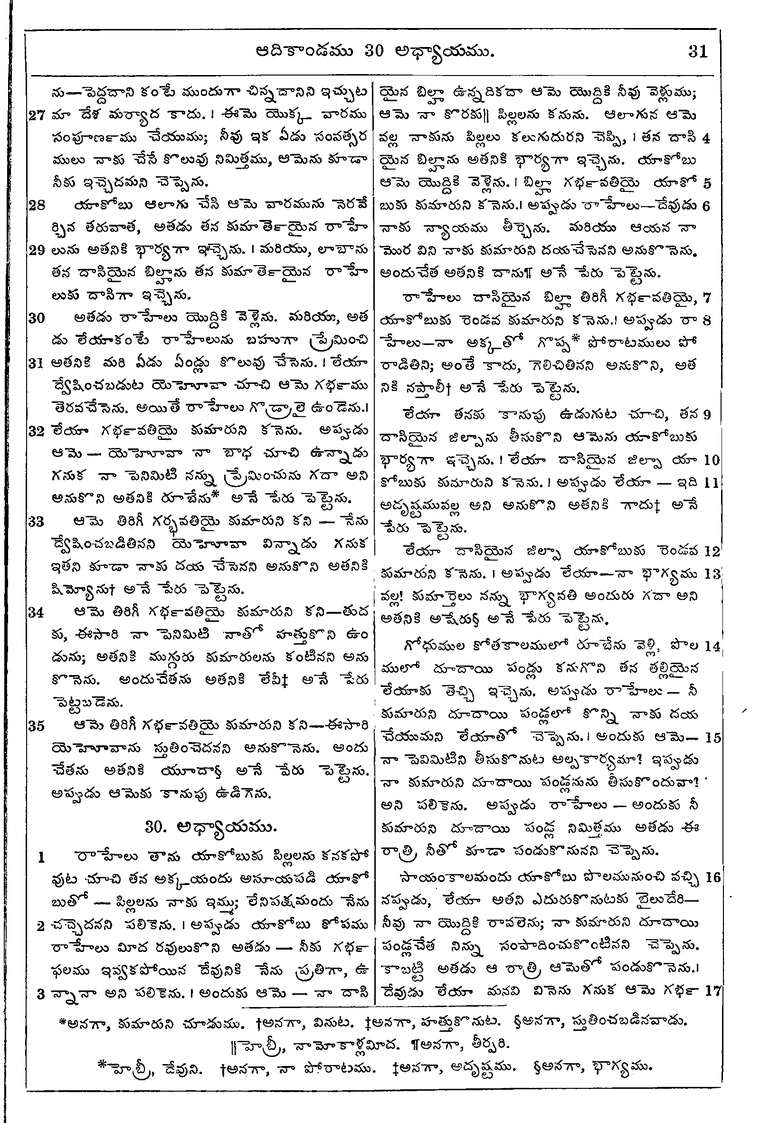 ఆదికాండము 30 అధ్యాయము. 31
ను—పెద్దదాని కంటే ముందుగా చిన్నదానిని ఇచ్చుట
27 మా దేశ మర్యాద కాదు. । ఈమె యొక్క వారము
సంపూర్ణము చేయుము; నీవు ఇక ఏడు సంవత్సర
ములు నాకు చేసే కొలువు నిమిత్తము, ఆమెను కూడా
నీకు ఇచ్చెదమని చెప్పెను.
28 యాకోబు ఆలాగు చేసి ఆమె వారమును నెరవే
ర్చిన తరువాత, అతడు తన కుమార్తెయైన రాహే
29 లును అతనికి భార్యగా ఇచ్చెను. । మరియు, లాబాను
తన దాసియైన బిల్హాను తన కుమార్తెయైన రాహే
లుకు దాసిగా ఇచ్చెను.
30 అతడు రాహేలు యొద్దికి వెళ్లెను. మరియు, అత
డు లేయాకంటే రాహేలును బహుగా ప్రేమించి
31 అతనికి మరి ఏడు ఏండ్లు కొలువు చేసెను. । లేయా
ద్వేషించబడుట యెహోవా చూచి ఆమె గర్భము
తెరవచేసెను. అయితే రాహేలు గొడ్రాలై ఉండెను.।
32 లేయా గర్భవతియై కుమారుని కనెను. అప్పుడు
ఆమె — యెహోవా నా బాధ చూచి ఉన్నాడు
గనుక నా పెనిమిటి నన్ను ప్రేమించును గదా అని
అనుకొని అతనికి రూబేను* అనే పేరు పెట్టెను.
33 ఆమె తిరిగీ గర్భవతియై కుమారుని కని — నేను
ద్వేషించబడితినని యెహోవా విన్నాడు గనుక
ఇతని కూడా నాకు దయ చేసెనని అనుకొని అతనికి
షిమ్యోను† అనే పేరు పెట్టెను.
34 ఆమె తిరిగీ గర్భవతియై కుమారుని కని—తుద
కు, ఈసారి నా పెనిమిటి నాతో హత్తుకొని ఉం
డును; అతనికి ముగ్గురు కుమారులను కంటినని అను
కొనెను. అందుచేతను అతనికి లేవీ‡ అనే పేరు
పెట్టబడెను.
35 ఆమె తిరిగీ గర్భవతియై కుమారుని కని—ఈసారి
యెహోవాను స్తుతించెదనని అనుకొనెను. అందు
చేతను అతనికి యూదా§ అనే పేరు పెట్టెను.
అప్పుడు ఆమెకు కానుపు ఉడిగెను.
30. అధ్యాయము.
1 రాహేలు తాను యాకోబుకు పిల్లలను కనకపో
వుట చూచి తన అక్కయందు అసూయపడి యాకో
బుతో — పిల్లలను నాకు ఇమ్ము; లేనిపక్షమందు నేను
2 చచ్చెదనని పలికెను. । అప్పుడు యాకోబు కోపము
రాహేలు మీద రవులుకొని అతడు — నీకు గర్భ
ఫలము ఇవ్వకపోయిన దేవునికి నేను ప్రతిగా, ఉ
3 న్నానా అని పలికెను. । అందుకు ఆమె — నా దాసి
యైన బిల్హా ఉన్నదికదా ఆమె యొద్దికి నీవు వెళ్లుము;
ఆమె నా కొరకు‖ పిల్లలను కనును. ఆలాగున ఆమె
వల్ల నాకును పిల్లలు కలుగుదురని చెప్పి, । తన దాసి 4
యైన బిల్హాను అతనికి భార్యగా ఇచ్చెను. యాకోబు
ఆమె యొద్దికి వెళ్లెను. । బిల్హా గర్భవతియై యాకో 5
బుకు కుమారుని కనెను.। అప్పుడు రాహేలు—దేవుడు 6
నాకు న్యాయము తీర్చెను. మరియు ఆయన నా
మొర విని నాకు కుమారుని దయచేసెనని అనుకొనెను.
అందుచేత అతనికి దాను¶ అనే పేరు పెట్టెను.
రాహేలు దాసియైన బిల్హా తిరిగీ గర్భవతియై, 7
యాకోబుకు రెండవ కుమారుని కనెను.। అప్పుడు రా 8
హేలు—నా అక్కతో గొప్ప* పోరాటములు పో
రాడితిని; అంతే కాదు, గెలిచితినని అనుకొని, అత
నికి నఫ్తాలీ† అనే పేరు పెట్టెను.
లేయా తనకు కానుపు ఉడుగుట చూచి, తన 9
దాసియైన జిల్పాను తీసుకొని ఆమెను యాకోబుకు
భార్యగా ఇచ్చెను. । లేయా దాసియైన జిల్పా యా 10
కోబుకు కుమారుని కనెను. । అప్పుడు లేయా — ఇది 11
అదృష్టమువల్ల అని అనుకొని అతనికి గాదు‡ అనే
పేరు పెట్టెను.
లేయా దాసియైన జిల్పా యాకోబుకు రెండవ 12
కుమారుని కనెను. । అప్పుడు లేయా—నా భాగ్యము 13
వల్ల! కుమార్తెలు నన్ను భాగ్యవతి అందురు గదా అని
అతనికి ఆషేరు§ అనే పేరు పెట్టెను.
గోధుముల కోతకాలములో రూబేను వెళ్లి, పొల 14
ములో దూదాయి పండ్లు కనుగొని తన తల్లియైన
లేయాకు తెచ్చి ఇచ్చెను. అప్పుడు రాహేలు — నీ
కుమారుని దూదాయి పండ్లలో కొన్ని నాకు దయ
చేయుమని లేయాతో చెప్పెను.। అందుకు ఆమె— 15
నా పెనిమిటిని తీసుకొనుట అల్పకార్యమా? ఇప్పుడు
నా కుమారుని దూదాయి పండ్లనును తీసుకొందువా?
అని పలికెను. అప్పుడు రాహేలు — అందుకు నీ
కుమారుని దూదాయి పండ్ల నిమిత్తము అతడు ఈ
రాత్రి నీతో కూడా పండుకొనునని చెప్పెను.
సాయంకాలమందు యాకోబు పొలమునుంచి వచ్చి 16
నప్పుడు, లేయా అతని ఎదురుకొనుటకు బైలుదేరి—
నీవు నా యొద్దికి రావలెను; నా కుమారుని దూదాయి
పండ్లచేత నిన్ను సంపాదించుకొంటినని చెప్పెను.
కాబట్టి అతడు ఆ రాత్రి ఆమెతో పండుకొనెను.।
దేవుడు లేయా మనవి వినెను గనుక ఆమె గర్భ 17
*అనగా, కుమారుని చూడుము. †అనగా, వినుట. ‡అనగా, హత్తుకొనుట. §అనగా, స్తుతించబడినవాడు.
‖హెబ్రీ, నామోకాళ్లమీద. ¶అనగా, తీర్పరి.
*హెబ్రీ, దేవుని. †అనగా, నా పోరాటము. ‡అనగా, అదృష్టము. §అనగా, భాగ్యము.